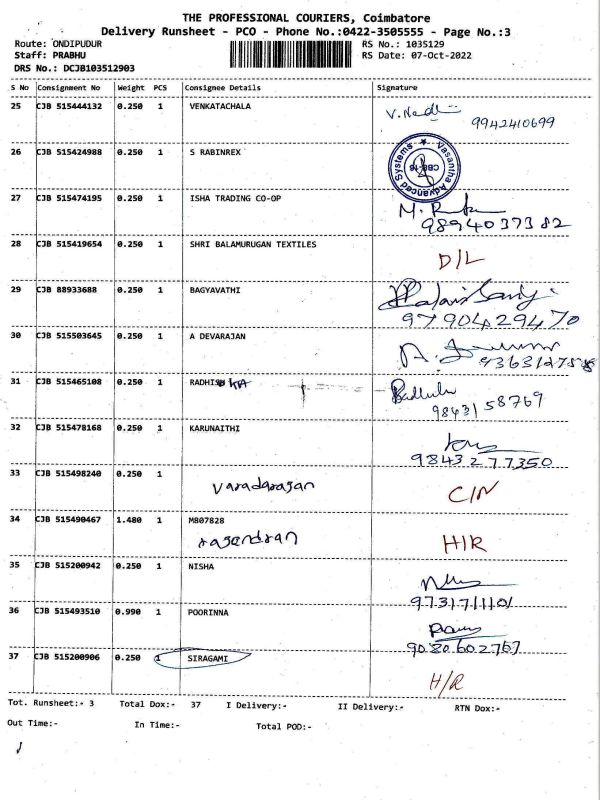 THE PROFESSIONAL COURIERS, Coimbatore
Delivery Runsheet - PCO - Phone No.:0422-3505555 - Page No.:3
Route: ONDIPUDUR RS No.: 1035129
Staff: PRABHU RS Date: 07-Oct-2022
DRS No.: DCJB103512903
S No Consignment No Weight PCS Consignee Details Signature
25 CJB 515444132 0.250 1 VENKATACHALA
9942410699
26 CJB 515424988 0.250 1 S RABINREX
Vasantha Advanced Systems
27 CJB 515474195 0.250 1 ISHA TRADING CO-OP
9894037382
28 CJB 515419654 0.250 1 SHRI BALAMURUGAN TEXTILES
D/L
29 CJB 88933688 0.250 1 BAGYAVATHI
9790429470
30 CJB 515503645 0.250 1 A DEVARAJAN
31 CJB 515465108 0.250 1
9843158769
32 CJB 515478168 0.250 1 KARUNAITHI
9843277350
33 CJB 515498240 0.250 1
varadarajan
C/N
34 CJB 515490467 1.480 1 M807828
rajendran H/R
35 CJB 515200942 0.250 1 NISHA
9731711101
36 CJB 515493510 0.990 1 POORINNA
9080602767
37 CJB 515200906 0.250 1 SIRAGAMI
H/R
Tot. Runsheet:- 3 Total Dox:- 37 I Delivery:- II Delivery:- RTN Dox:-
Out Time:- In Time:- Total POD:-